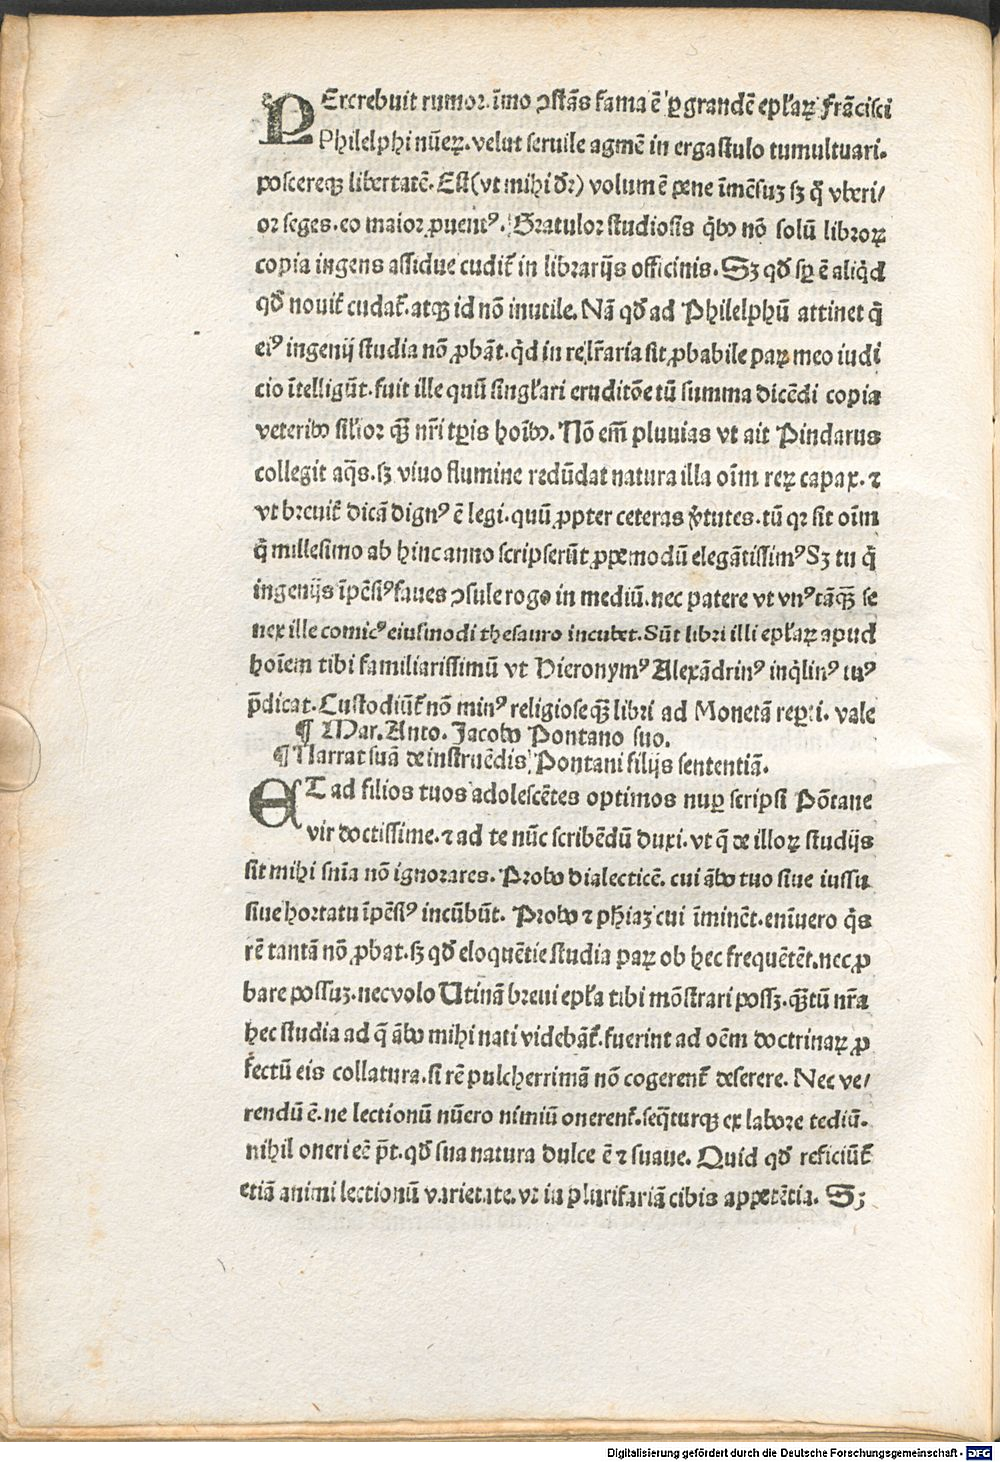 PErcrebuit rumor. īmo ꝯstās fama ē ꝑgrandē epl'aꝝ frācisci
Philelphi nūeꝝ. velut seruile agmē in ergastulo tumultuari.
poscereqꝫ libertatē. Est (vt mihi dr̄) volum ē pene īmēsuꝫ sꝫ q̄ vberi/
or seges. eo maior ꝓuenitꝰ. Gratulor studiosis qͥbꝰ nō solū libroꝝ
copia ingens assidue cudit᷑ in librarijs officinis. Sꝫ qd̄ sꝑ ē aliqͥd
qd̄ nouit᷑ cudat᷑. atqꝫ id nō inutile. Nā qd̄ ad Philelphū attinet q̄
eiꝰ ingenij studia nō ꝓbāt. qͥd in re lr̄aria sit ꝓbabile paꝝ meo iudi
cio ītelligūt. fuit ille quū singl'ari eruditōe tū summa dicēdi copia
veteribꝰ silior qꝫ̄ nr̄i tꝑis hoībꝰ. Nō em̄ pluuias vt ait Pindarus
collegit aq̄s. sꝫ viuo flumine redūdat natura illa oīm reꝝ capax. ⁊
vt breuit᷑ dicā dignꝰ ē legi. quū ꝓpter ceteras v̓tutes. tū qꝛ sit oīm
q̄ millesimo ab hinc anno scripserūt ꝓpemodū elegātissimꝰ Sꝫ tu q̄
ingenijs īpēsiꝰ faues ꝯsule rogo in mediū. nec patere vt vnꝰ tāqꝫ̄ se
nex ille comicꝰ eiusmodi thesauro incubet. Sūt libri illi epl'aꝝ apud
hoīem tibi familiarissimū vt Hieronymꝰ Alexādrinꝰ inq̇linꝰ tuꝰ
p̄dicat. Custodiūt᷑ nō minꝰ religiose qꝫ̄ libri ad Monetā reꝑti. vale
¶ Mar. Anto. Jacobo Pontano suo.
¶ Narrat suā de instruēdis Pontani filijs sententiā.
ET ad filios tuos adolescētes optimos nuꝑ scripsi Pōtane
vir doctissime. ⁊ ad te nūc scribēdū duxi. vt q̄ de illoꝝ studijs
sit mihi sn̄ia nō ignorares. Probo dialecticē. cui ābo tuo siue iussu
siue hortatu īpēsiꝰ incūbūt. Probo ⁊ ph̄iaꝫ cui īminēt. enīuero q̄s
rē tantā nō ꝓbat. sꝫ qd̄ eloquētie studia paꝝ ob hec frequētēt. nec ꝓ
bare possuꝫ. nec volo Utinā breui epl'a tibi mōstrari possꝫ. qꝫ̄tū nr̄a
hec studia ad q̄ ābo mihi nati videbāt᷑. fuerint ad oēm doctrinaꝝ ꝓ
fectū eis collatura. si rē pulcherrimā nō cogerent᷑ deserere. Nec ve/
rendū ē. ne lectionū nūero nimiū onerent᷑. seq̄turqꝫ ex labore tediū.
nihil oneri eē pt̄. qd̄ sua natura dulce ē ⁊ suaue. Quid qd̄ reficiūt᷑
etiā animi lectionū varietate. vt in plurifariā cibis appetētia. Sꝫ
Digitalisierung gefördert durch die Deutsche Forschungsgemeinschaft - DFG